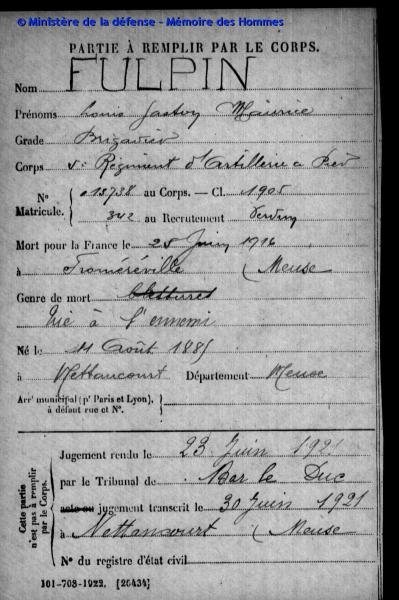 © Ministère de la défense - Mémoire des Hommes
PARTIE À REMPLIR PAR LE CORPS.
Nom FULPIN
Prénoms Louis Gaston Maurice
Grade Brigadier
Corps 5e Régiment d'Artillerie à Pied
N° Matricule. 013738 au Corps. — Cl. 1905
342 au Recrutement Verdun
Mort pour la France le 25 Juin 1916
à Froméréville (Meuse
Genre de mort Blessures
Tué à l'ennemi
Né le 11 Août 1885
à Nettancourt Département Meuse
Arrt municipal (pr Paris et Lyon), à défaut rue et N°.
Cette partie n'est pas à remplir par le Corps.
Jugement rendu le 23 Juin 1921
par le Tribunal de Bar le Duc
acte ou jugement transcrit le 30 Juin 1921
à Nettancourt (Meuse
N° du registre d'état civil
101-708-1922. [26434]